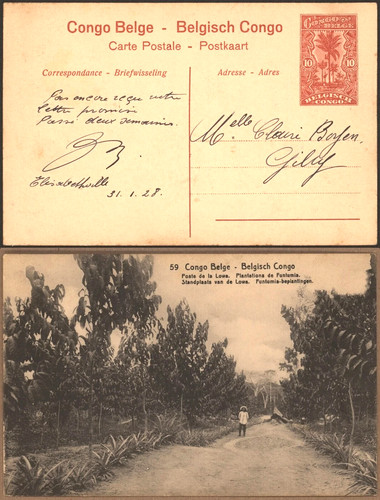 Congo Belge - Belgisch Congo
Carte Postale - Postkaart
Correspondance - Briefwisseling
Adresse - Adres
CONGO BELGE
10 10
BELGISCH CONGO
Pas encore reçu votre
lettre promise
Passé deux semaines.
Elisabethville
31.1.28.
Melle Claire
Gilly
59 Congo Belge - Belgisch Congo
Poste de la Lowa. Plantations de Funtumia.
Standplaats van de Lowa. Funtumia-beplantingen.